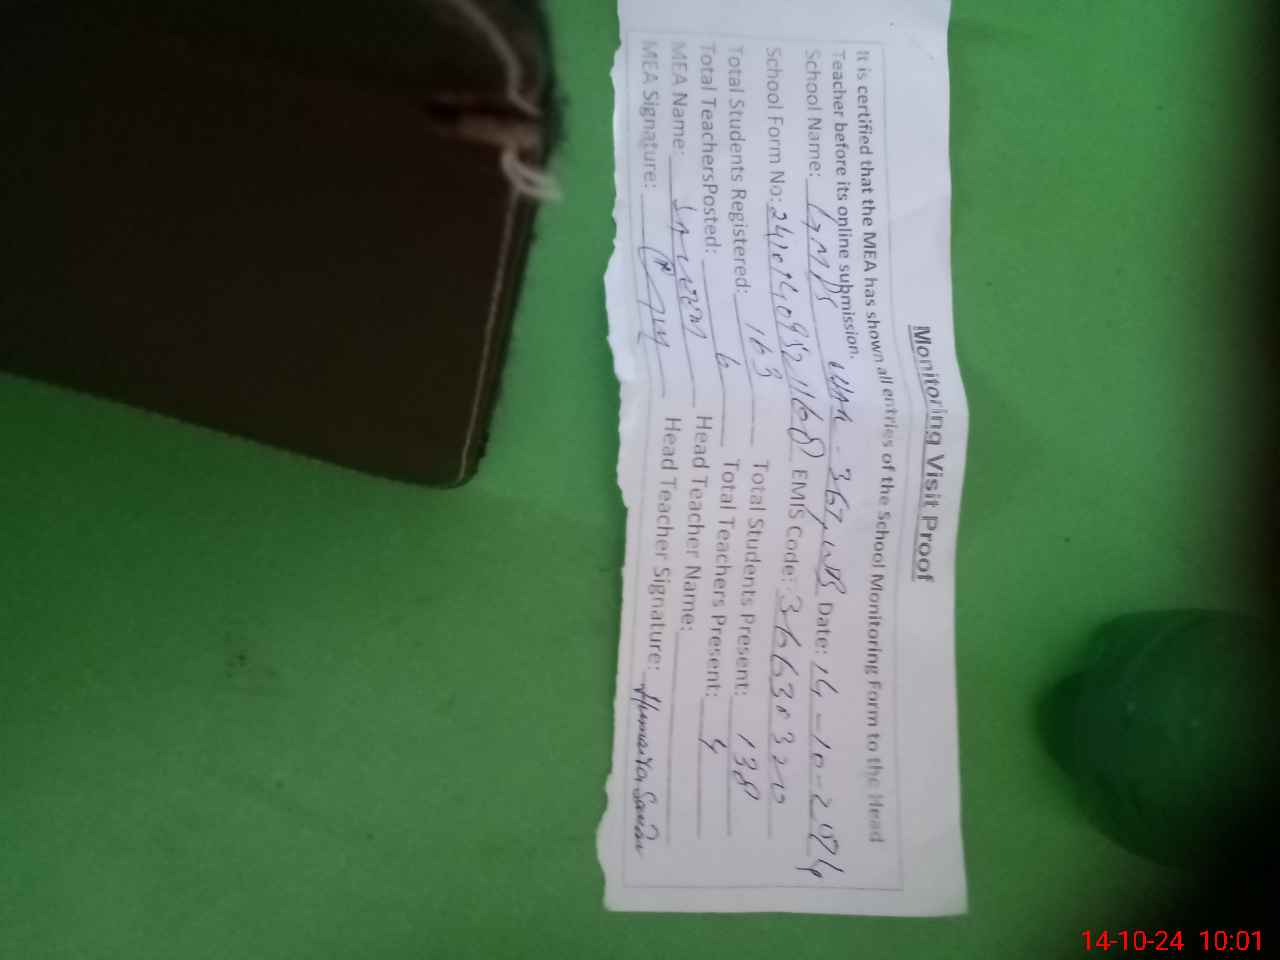 Monitoring Visit Proof
It is certified that the MEA has shown all entries of the School Monitoring Form to the Head
Teacher before its online submission.
School Name: GMPS 367, WB Date: 14-10-2024
School Form No: EMIS Code: 36630320
Total Students Registered: 163 Total Students Present: 138
Total TeachersPosted: 6 Total Teachers Present: 4
MEA Name: Head Teacher Name:
MEA Signature: Head Teacher Signature: Humaira
14-10-24 10:01